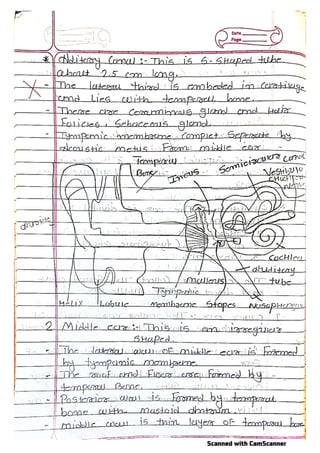 Date
Page
* Auditory Canal :- This is S-shaped tube
about 2.5 cm long.
- The lateral third is embeded in cartilage
and lies with temporal bone.
- There are ceremenous gland and Hair
Folicies, Sebaceous gland.
- Tympanic membrane complet Seperate by
acoustic metus From middle ear -
Temporal
Bone
Incus
Semicircular Canal
Vestibulo
Nerve
Cochlea
Auditory
tube
Malleous
Tympanic
Helix Lobule membrane Stapes Nasopharynx
2 Middle ear :- This is an irregular
shaped.
- The lateral wall of middle ear is Formed
by tympanic membrane
- The roof and Floor are formed by
temporal Bone.
- Posterior wall is Formed by temporal
bone with mastoid antrum.
- middle wall is thin layer of temporal bone
Scanned with CamScanner